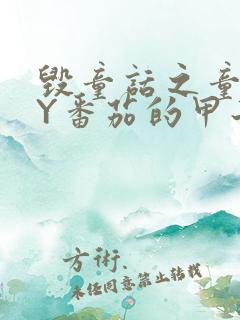 毁童话之童
Y番茄的甲
方術.
未经同意禁止转载